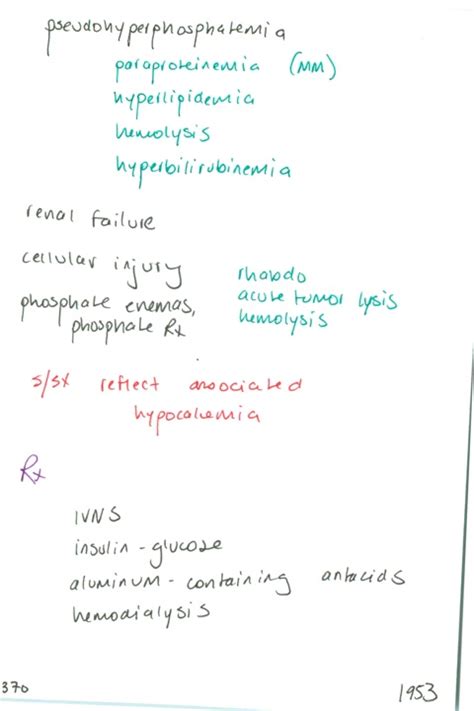 pseudohyperphosphatemia
paraproteinemia (MM)
hyperlipidemia
hemolysis
hyperbilirubinemia
renal failure
cellular injury
rhabdo
acute tumor lysis
hemolysis
phosphate enemas,
phosphate Rx
s/sx reflect associated
hypocalcemia
Rx
IVNS
insulin - glucose
aluminum - containing antacids
hemodialysis
370
1953